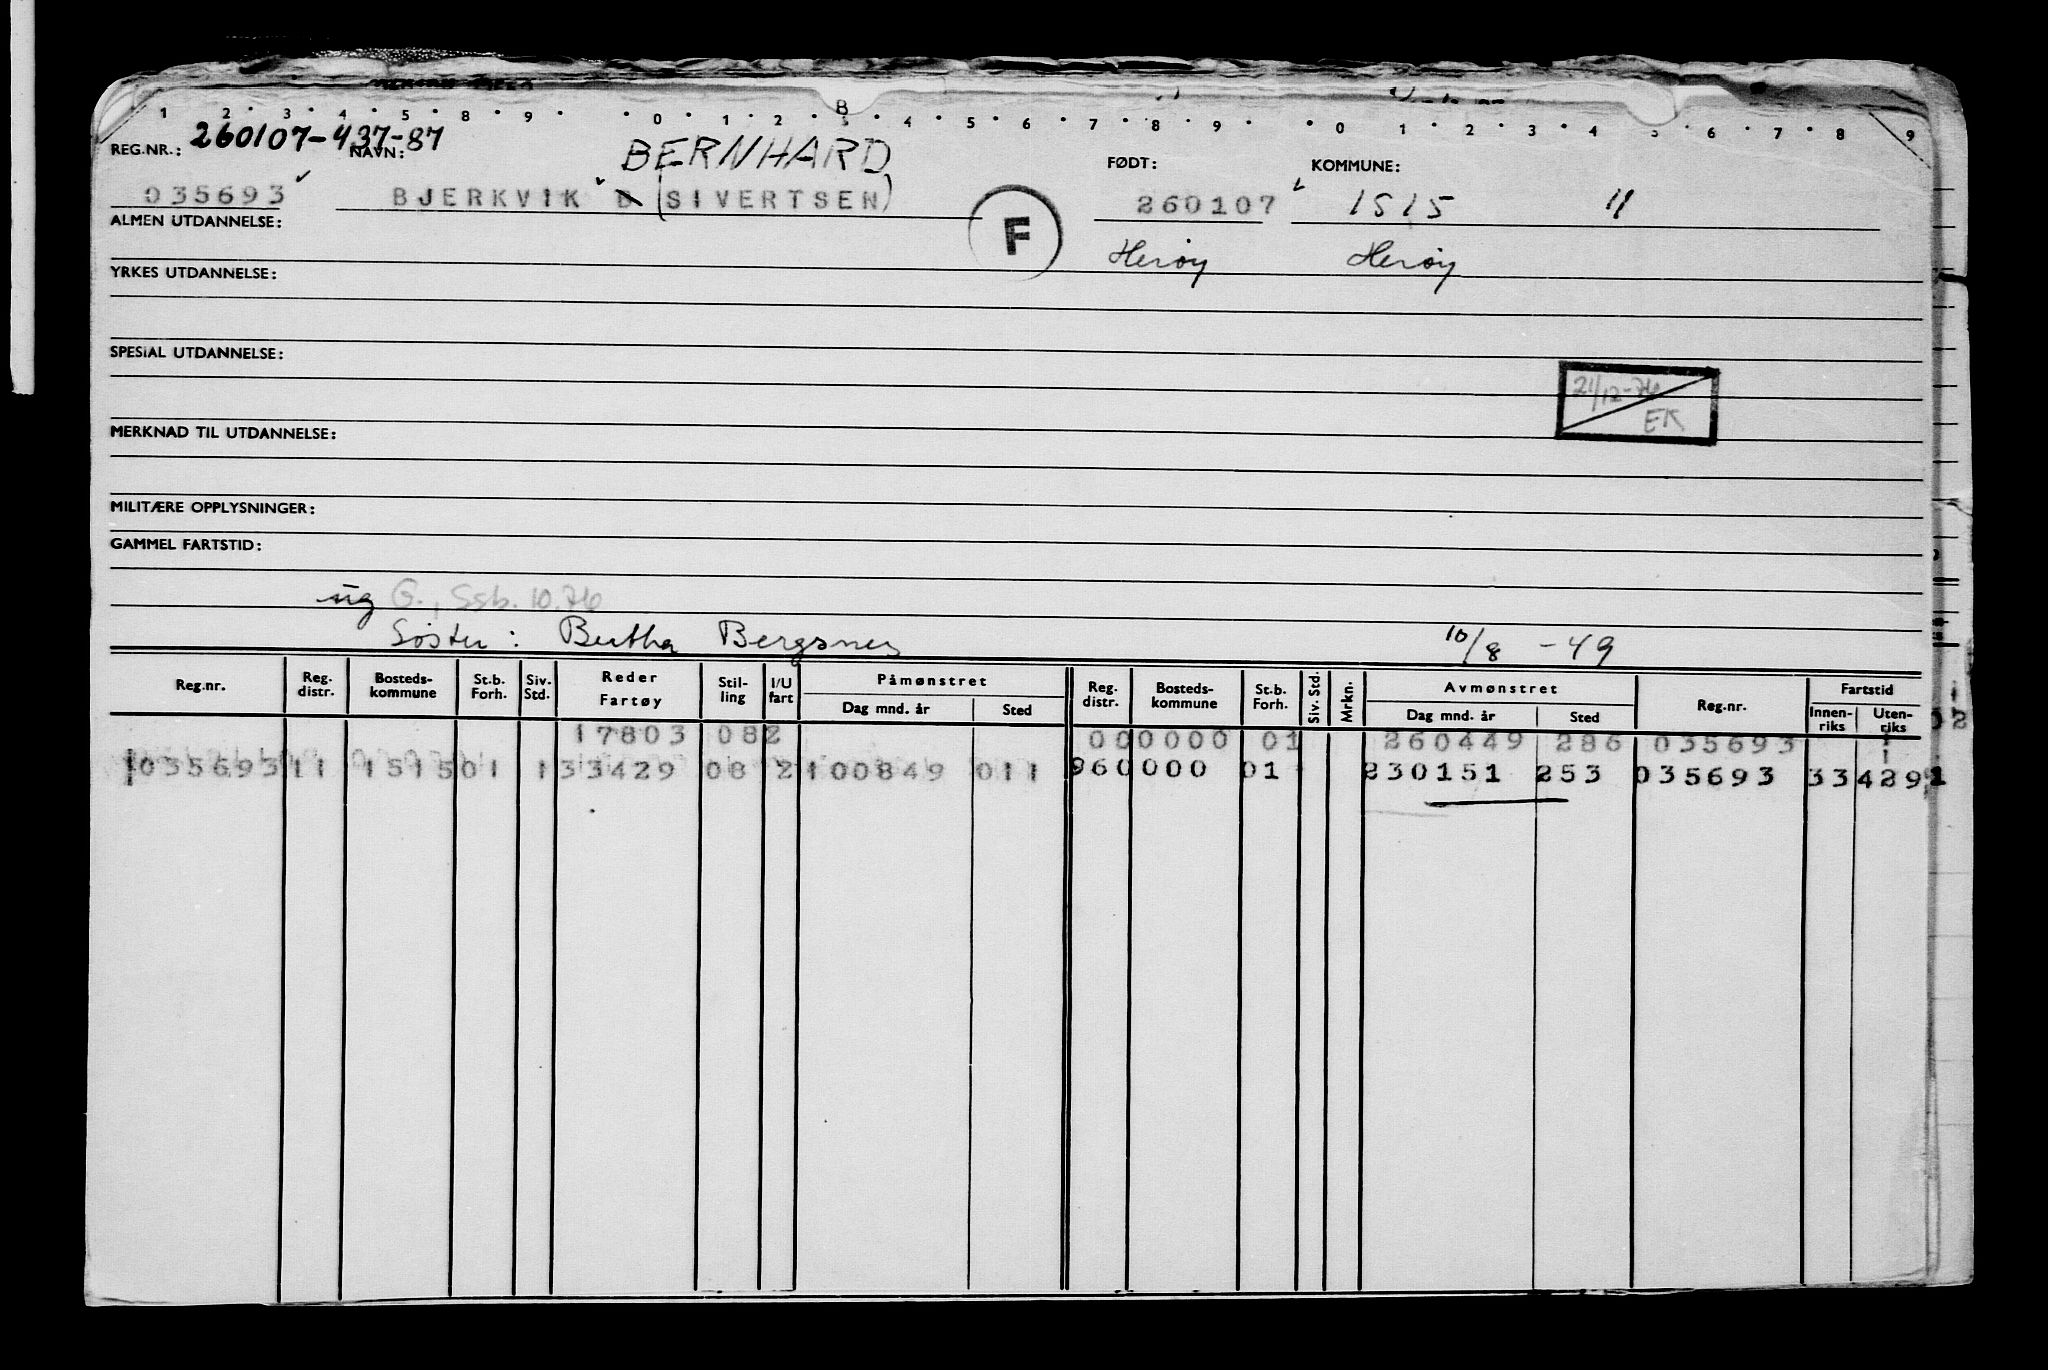 1 · 2 · 3 · 4 · 5 · 8 · 9 · · 0 · 1 · 2 · 3 · 4 · 5 · 6 · 7 · 8 · 9 · · 0 · 1 · 2 · 3 · 4 · 5 · 6 · 7 · 8 · 9
B
REG.NR.: 260107-437-87 NAVN: BERNHARD FØDT: KOMMUNE:
035693 BJERKVIK B (SIVERTSEN) 260107 1515 11
F
ALMEN UTDANNELSE: Herøy Herøy
YRKES UTDANNELSE:
SPESIAL UTDANNELSE:
21/12-76
EK
MERKNAD TIL UTDANNELSE:
MILITÆRE OPPLYSNINGER:
GAMMEL FARTSTID:
ug G., Ssb. 10.76
Søster: Bertha Bergsnes 10/8 -49
Reg.nr. Reg. distr. Bosteds-kommune St.b. Forh. Siv. Std. Reder Fartøy Stil-ling I/U fart Påmønstret Dag mnd. år Sted Reg. distr. Bosteds-kommune St.b. Forh. Siv. Std. Mrkn. Avmønstret Dag mnd. år Sted Reg.nr. Fartstid Innen-riks Uten-riks
17803 082 000000 01 260449 286 035693
035693 11 1515 01 1 33429 08 2 100849 011 960000 01 230151 253 035693 33429 1